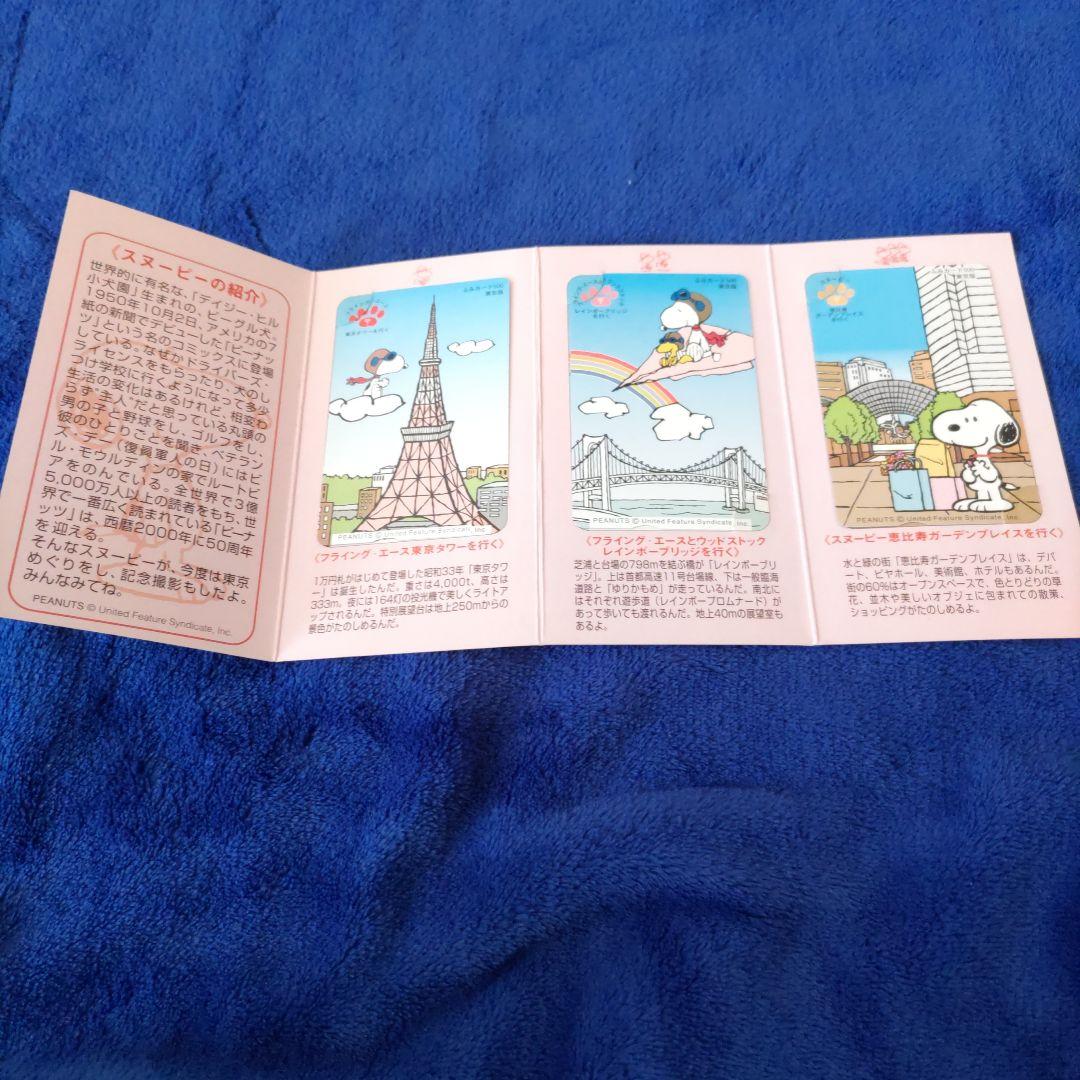 《スヌーピーの紹介》
世界的に有名な、「デイジー・ヒル
小犬園」生まれの、ビーグル犬。
1950年10月2日、アメリカの7
紙の新聞でデビューした「ピーナッ
ツ」という名のコミックスに登場
している。なぜかドライバーズ・
ライセンスをもらったり、犬のし
つけ学校に行くようになって多少
生活の変化はあるけれど、相変わ
らず"主人"だと思っている丸頭の
男の子と野球をし、ゴルフをし、
彼のひとりごとを聞き、ベテラン
ズ・デー（復員軍人の日）にはビ
ル・モウルディンの家でルートビ
アをのんでいる。全世界で3億
5,000万人以上の読者をもち、世
界で一番広く読まれている「ピーナ
ッツ」は、西暦2000年に50周年
を迎える。
そんなスヌーピーが、今度は東京
めぐりをし、記念撮影もしたよ。
みんなみてね。
PEANUTS © United Feature Syndicate, Inc.
ふみカード500
東京版
東京タワーを行く
PEANUTS © United Feature Syndicate, Inc.
《フライング・エース東京タワーを行く》
1万円札がはじめて登場した昭和33年「東京タワ
ー」は誕生したんだ。重さは4,000t、高さは
333m。夜には164灯の投光機で美しくライトア
ップされるんだ。特別展望台は地上250mからの
景色がたのしめるんだ。
ふみカード500
東京版
レインボーブリッジ
を行く
PEANUTS © United Feature Syndicate, Inc.
《フライング・エースとウッドストック
レインボーブリッジを行く》
芝浦と台場の798mを結ぶ橋が「レインボーブリ
ッジ」。上は首都高速11号台場線、下は一般臨海
道路と「ゆりかもめ」が走っているんだ。南北に
はそれぞれ遊歩道（レインボープロムナード）が
あって歩いても渡れるんだ。地上40mの展望室も
あるよ。
ふみカード500
東京版
スヌーピー
恵比寿
ガーデンプレイス
を行く
PEANUTS © United Feature Syndicate, Inc.
《スヌーピー恵比寿ガーデンプレイスを行く》
水と緑の街「恵比寿ガーデンプレイス」は、デパ
ート、ビヤホール、美術館、ホテルもあるんだ。
街の60%はオープンスペースで、色とりどりの草
花、並木や美しいオブジェに包まれての散策、
ショッピングがたのしめるよ。